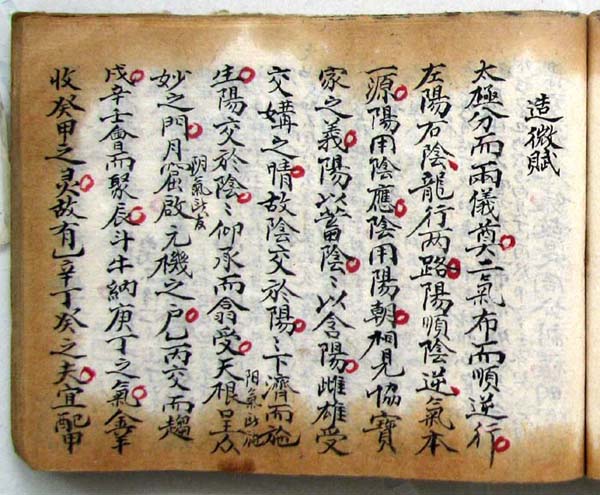 造微賦
太極分而兩儀奠二氣布而順逆行
左陽右陰龍行两路陽順陰逆氣本
一源陽用陰應陰用陽朝相見協寶
家之義陽以蓄陰〻以含陽雌雄受
交媾之晴故陰交於陽〻下濟而施
阳氣所施
生陽交於陰〻仰承而翕受天根呈众
阴氣所发
妙之門月窟啟元機之户乙丙交而趨
戌辛壬會而聚辰斗牛納庚丁之氣金羊
收癸甲之灵故有乙辛丁癸之夫宜配甲